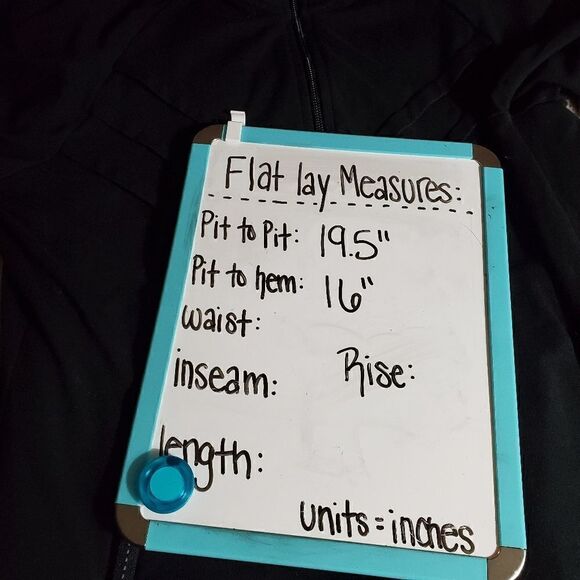 Flat lay Measures:
Pit to Pit: 19.5"
Pit to hem: 16"
waist:
inseam: Rise:
length:
units = inches